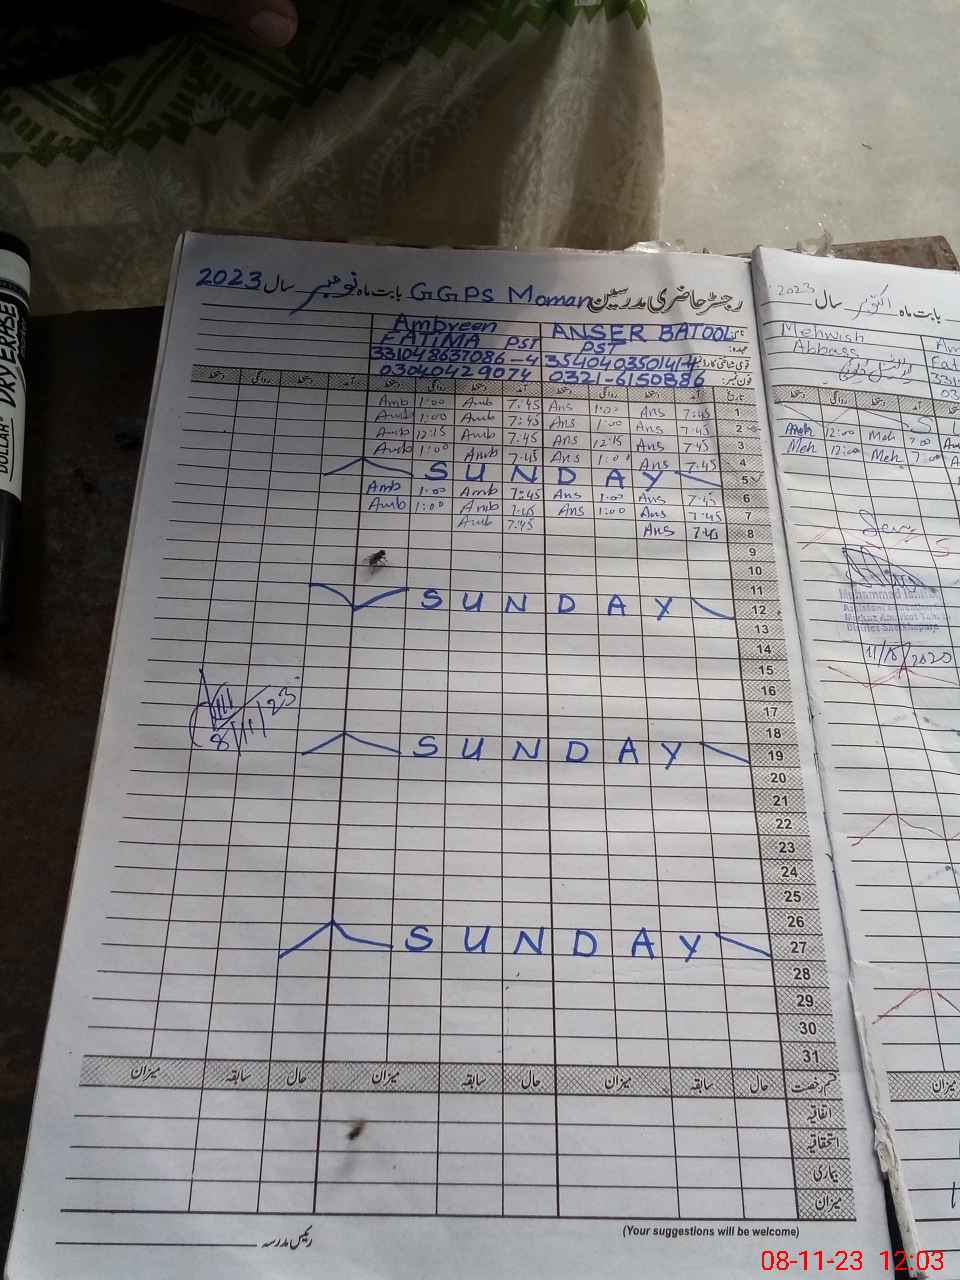 رجسٹر حاضری مدرسین GGPS Moman بابت ماہ نومبر سال 2023
نام: ANSER BATOOL Ambreen FATIMA
عہدہ: PST PST
قومی شناختی کارڈ 331048637086-4
فون نمبر: 0321-6150886 03040429074
تاریخ آمد دستخط روانگی دستخط آمد دستخط روانگی دستخط آمد دستخط روانگی دستخط
1 7:45 Ans 1:00 Ans 7:45 Amb 1:00 Amb
2 7:45 Ans 1:00 Ans 7:45 Amb 1:00 Amb
3 7:45 Ans 12:15 Ans 7:45 Amb 12:15 Amb
4 7:45 Ans 1:00 Ans 7:45 Amb 1:00 Amb
5 SUNDAY
6 7:45 Ans 1:00 Ans 7:45 Amb 1:00 Amb
7 7:45 Ans 1:00 Ans 7:45 Amb 1:00 Amb
8 7:45 Ans 7:45 Amb
9
10
11
12 SUNDAY
13
14
15
16
17
18
8/11/23
19 SUNDAY
20
21
22
23
24
25
26
27 SUNDAY
28
29
30
31
قسم رخصت حال سابقہ میزان حال سابقہ میزان حال سابقہ میزان
اتفاقیہ
استحقاقیہ
بیماری
میزان
(Your suggestions will be welcome)
رئیس مدرسہ
بابت ماہ اکتوبر سال 2023
Mehwish
Abbass
دستخط روانگی دستخط آمد
Meh 12:00 Meh 7:00
Meh 12:00 Meh 7:00
11/10/2020
میزان
DOLLAR
DRY ERASE
08-11-23 12:03